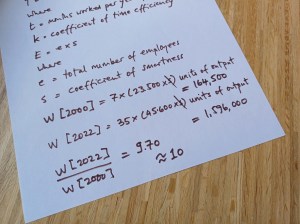 where
t = months worked per ye
k = coefficient of time efficiency
E = e × s
where
e = total number of employees
s = coefficient of smartness
W [2000] = 7 × (23.500 × 1) units of output
= 164,500
W [2022] = 35 × (45.600 × 1) units of output
= 1,596,000
W [2022] / W [2000] = 9.70
≈ 10